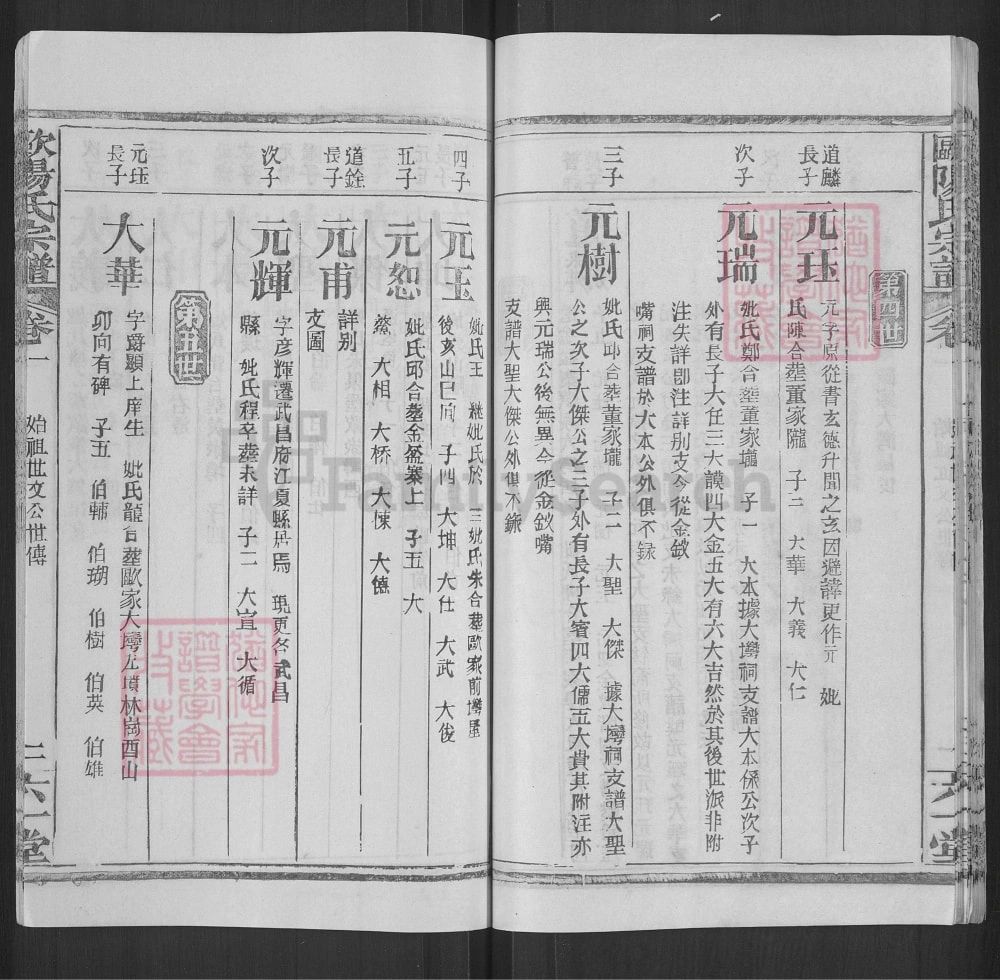 歐陽氏宗譜
卷一
六一堂
第四世
道麟長子
元珏
元字原從書玄德升聞之玄因避諱更作元 妣
氏陳合塟董家隴 子三 大華 大義 大仁
次子
元瑞
妣氏鄭合塟董家壠 子一 大本據大灣祠支譜大本係公次子
外有長子大任三大謨四大金五大有六大吉然於其後世派非附
注失詳卽注詳別支今從金釵
嘴祠支譜於大本公外俱不錄
三子
元樹
妣氏邱合塟董家壠 子二 大聖 大傑 據大灣祠支譜大聖
公之次子大傑公之三子外有長子大賓四大儒五大貴其附注亦
與元瑞公後無異今從金釵嘴
支譜大聖大傑公外俱不錄
四子
元玉
妣氏王 繼妣氏於 三妣氏朱合塟歐家前灣屋
後亥山巳向 子四 大坤 大仕 大武 大俊
五子
元恕
妣氏邱合塟金盔寨上 子五 大
蔡 大相 大桥 大棟 大僖
道銓長子
元甫
詳別
支圖
次子
元輝
字彦輝遷武昌府江夏縣居焉 現更名武昌
縣 妣氏程辛塟未詳 子二 大宜 大循
第五世
元珏長子
大華
字爵顯上庠生 妣氏龍合塟歐家大灣尤墳林崗酉山
卯向有碑 子五 伯輔 伯瑚 伯樹 伯英 伯雄
歐陽氏宗譜
卷一
始祖世文公世傳
二
六一堂
FamilySearch